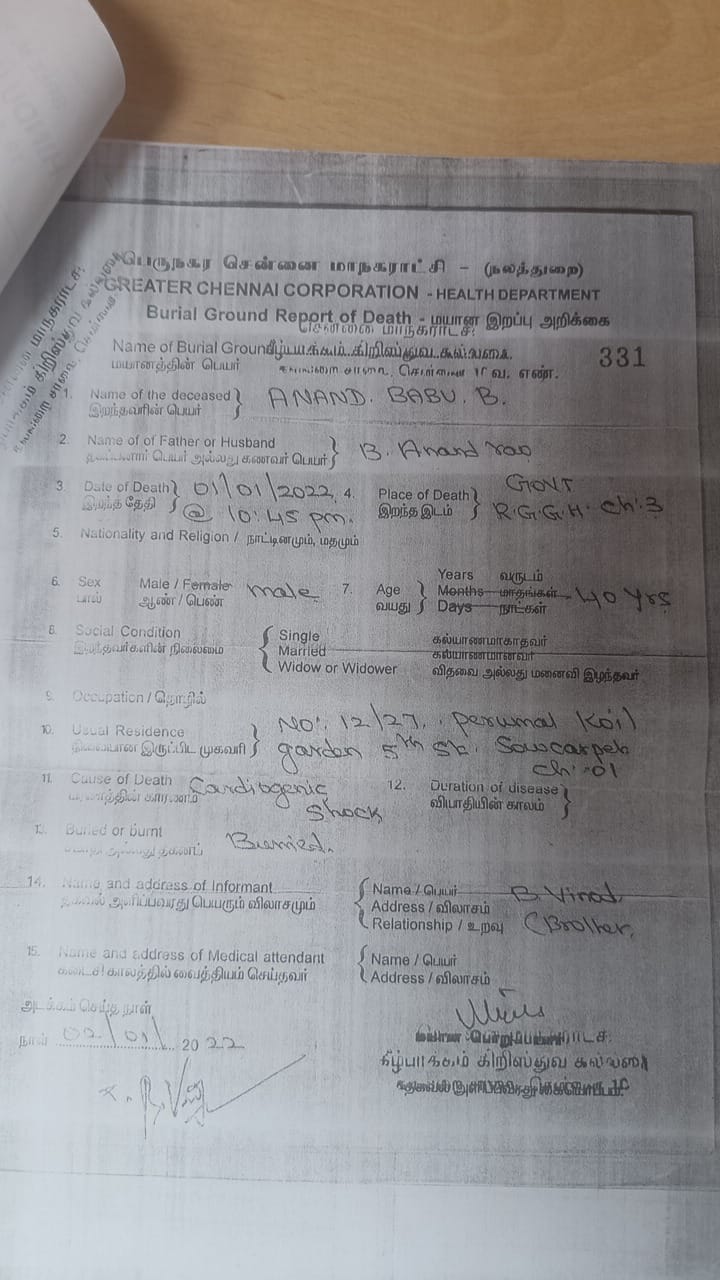 பெருநகர சென்னை மாநகராட்சி - (நலத்துறை)
GREATER CHENNAI CORPORATION - HEALTH DEPARTMENT
Burial Ground Report of Death - மயான இறப்பு அறிக்கை
சென்னை மாநகராட்சி
Name of Burial Ground கீழ்பாக்கம் கிறிஸ்துவ கல்லறை 331
மயானத்தின் பெயர் கல்லறை சாலை, சென்னை வ. எண்.
1. Name of the deceased } ANAND. BABU. B.
இறந்தவரின் பெயர்
2. Name of of Father or Husband } B. Anand rao
தகப்பனார் பெயர் அல்லது கணவர் பெயர்
3. Date of Death } 01/01/2022 4. Place of Death } GOVT
இறந்த தேதி @ 10:45 pm. இறந்த இடம் R.G.G.H. Ch:3
5. Nationality and Religion / நாட்டினமும், மதமும்
6. Sex Male / Female male 7. Age } Years வருடம்
பால் ஆண் / பெண் வயது Months மாதங்கள் 40 Yrs
Days நாட்கள்
8. Social Condition { Single கல்யாணமாகாதவர்
இறந்தவர்களின் நிலைமை Married கல்யாணமானவர்
Widow or Widower விதவை அல்லது மனைவி இழந்தவர்
9. Occupation / தொழில்
10. Usual Residence } No: 12/27, perumal Koil
நிலையான இருப்பிட முகவரி garden 5th st. Sowcarpet
Ch:-01
11. Cause of Death Cardiogenic 12. Duration of disease }
மரணத்தின் காரணம் Shock வியாதியின் காலம்
13. Buried or burnt Burried.
14. Name and address of Informant { Name / பெயர் B. Vinod
தகவல் அளிப்பவரது பெயரும் விலாசமும் Address / விலாசம்
Relationship / உறவு (Brother,
15. Name and address of Medical attendant { Name / பெயர்
கடைசி காலத்தில் வைத்தியம் செய்தவர் Address / விலாசம்
அடக்கம் செய்த நாள்
நாள் 02/01/2022
கீழ்பாக்கம் கிறிஸ்துவ கல்லறை